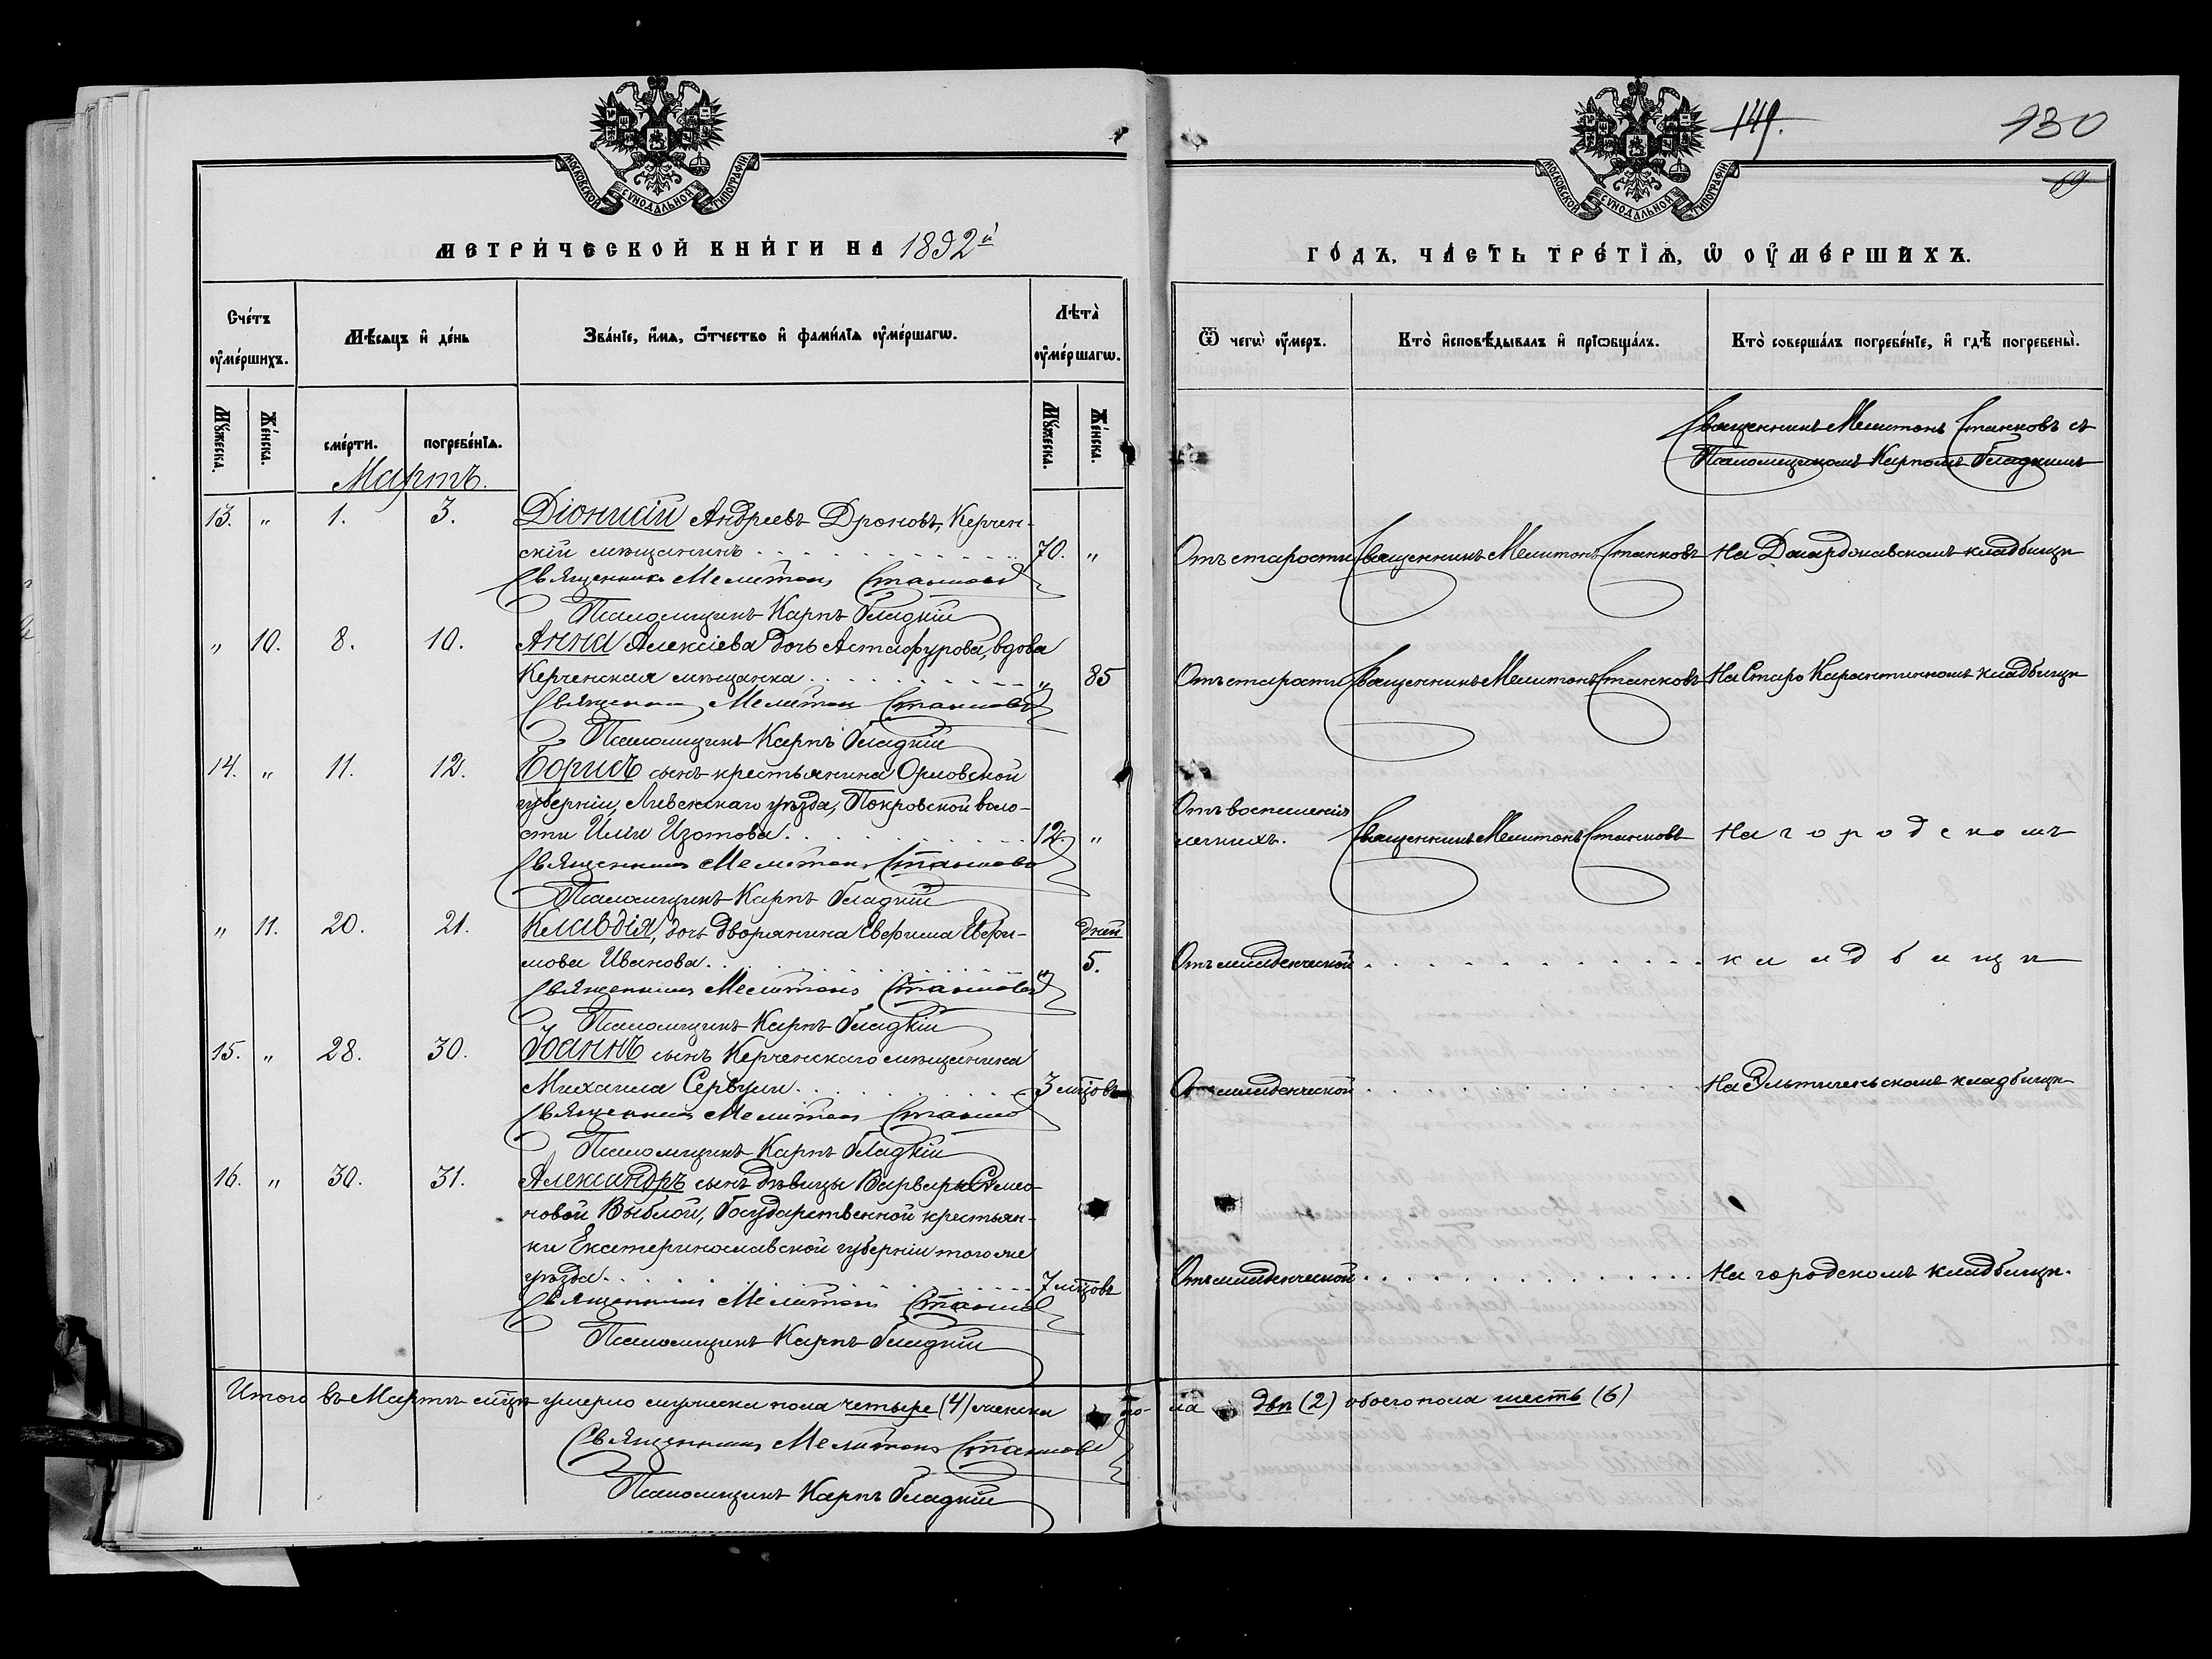 МОСКОВСКОЙ СѴНОДАЛЬНОЙ ТИПОГРАФІИ
МЕТРИ́ЧЕСКОЙ КНИ́ГИ НА 1892й
Сче́тъ ᲂу҆ме́ршихъ.
Мѣ́сяцъ и҆ де́нь
Зва́нїе, и҆́мѧ, ѻ҆́тчество и҆ фами́лїѧ ᲂу҆ме́ршагѡ.
Лѣта̀ ᲂу҆ме́ршагѡ.
Мꙋ́жеска.
Же́нска.
сме́рти.
погребе́нїѧ.
Мꙋ́жеска.
Же́нска.
Мартъ.
13. " 1. 3. Діонисій Андреевъ Дроновъ, Керчен-
скій мѣщанинъ 70. "
Священникъ Мелитонъ Станковъ
Псаломщикъ Карпъ Гладкій
" 10. 8. 10. Анна Алексіева дочь Астафурова, вдова
Керченская мѣщанка " 85
Священникъ Мелитонъ Станковъ
Псаломщикъ Карпъ Гладкій
14. " 11. 12. Борисъ сынъ крестьянина Орловской
губерніи, Ливенскаго уѣзда, Покровской воло-
сти Иліи Изотова. 12. "
Священникъ Мелитонъ Станковъ
Псаломщикъ Карпъ Гладкій
" 11. 20. 21. Клавдія, дочь дворянина Евфима Евфи- дней
мова Иванова. " 5.
Священникъ Мелитонъ Станковъ
Псаломщикъ Карпъ Гладкій
15. " 28. 30. Іоаннъ сынъ Керченскаго мѣщанина
Михаила Сервули. 3 мцовъ
Священникъ Мелитонъ Станковъ
Псаломщикъ Карпъ Гладкій
16. " 30. 31. Александръ сынъ дѣвицы Варвары Симо-
новой Выблой, Государственной крестьян-
ки Екатеринославской губерніи того же
уѣзда. 7 мцовъ
Священникъ Мелитонъ Станковъ
Псаломщикъ Карпъ Гладкій
Итого въ Мартѣ мцѣ умерло мужеска пола четыре (4) женска по-
Священникъ Мелитонъ Станковъ
Псаломщикъ Карпъ Гладкій
149.
130
69
МОСКОВСКОЙ СѴНОДАЛЬНОЙ ТИПОГРАФІИ
ГО́ДЪ, ЧА́СТЬ ТРЕ́ТЇѦ, Ѡ҆ ОУ҆МЕ́РШИХЪ.
Ѿ чегѡ̀ ᲂу҆́меръ.
Кто̀ и҆сповѣ́дывалъ и҆ прїѡбща́лъ.
Кто̀ соверша́лъ погребе́нїе, и҆ гдѣ̀ погребены̀.
Священникъ Мелитонъ Станковъ съ
Псаломщикомъ Карпомъ Гладкимъ
Отъ старости Священникъ Мелитонъ Станковъ На Джарджавскомъ кладбищѣ
Отъ старости Священникъ Мелитонъ Станковъ На Старо Карантинномъ кладбищѣ
Отъ воспаленія
легкихъ. Священникъ Мелитонъ Станковъ На городскомъ
Отъ младенческой кладбищѣ
Отъ младенческой На Эльтигенскомъ кладбищѣ
Отъ младенческой На городскомъ кладбищѣ.
ла двѣ (2) обоего пола шесть (6)